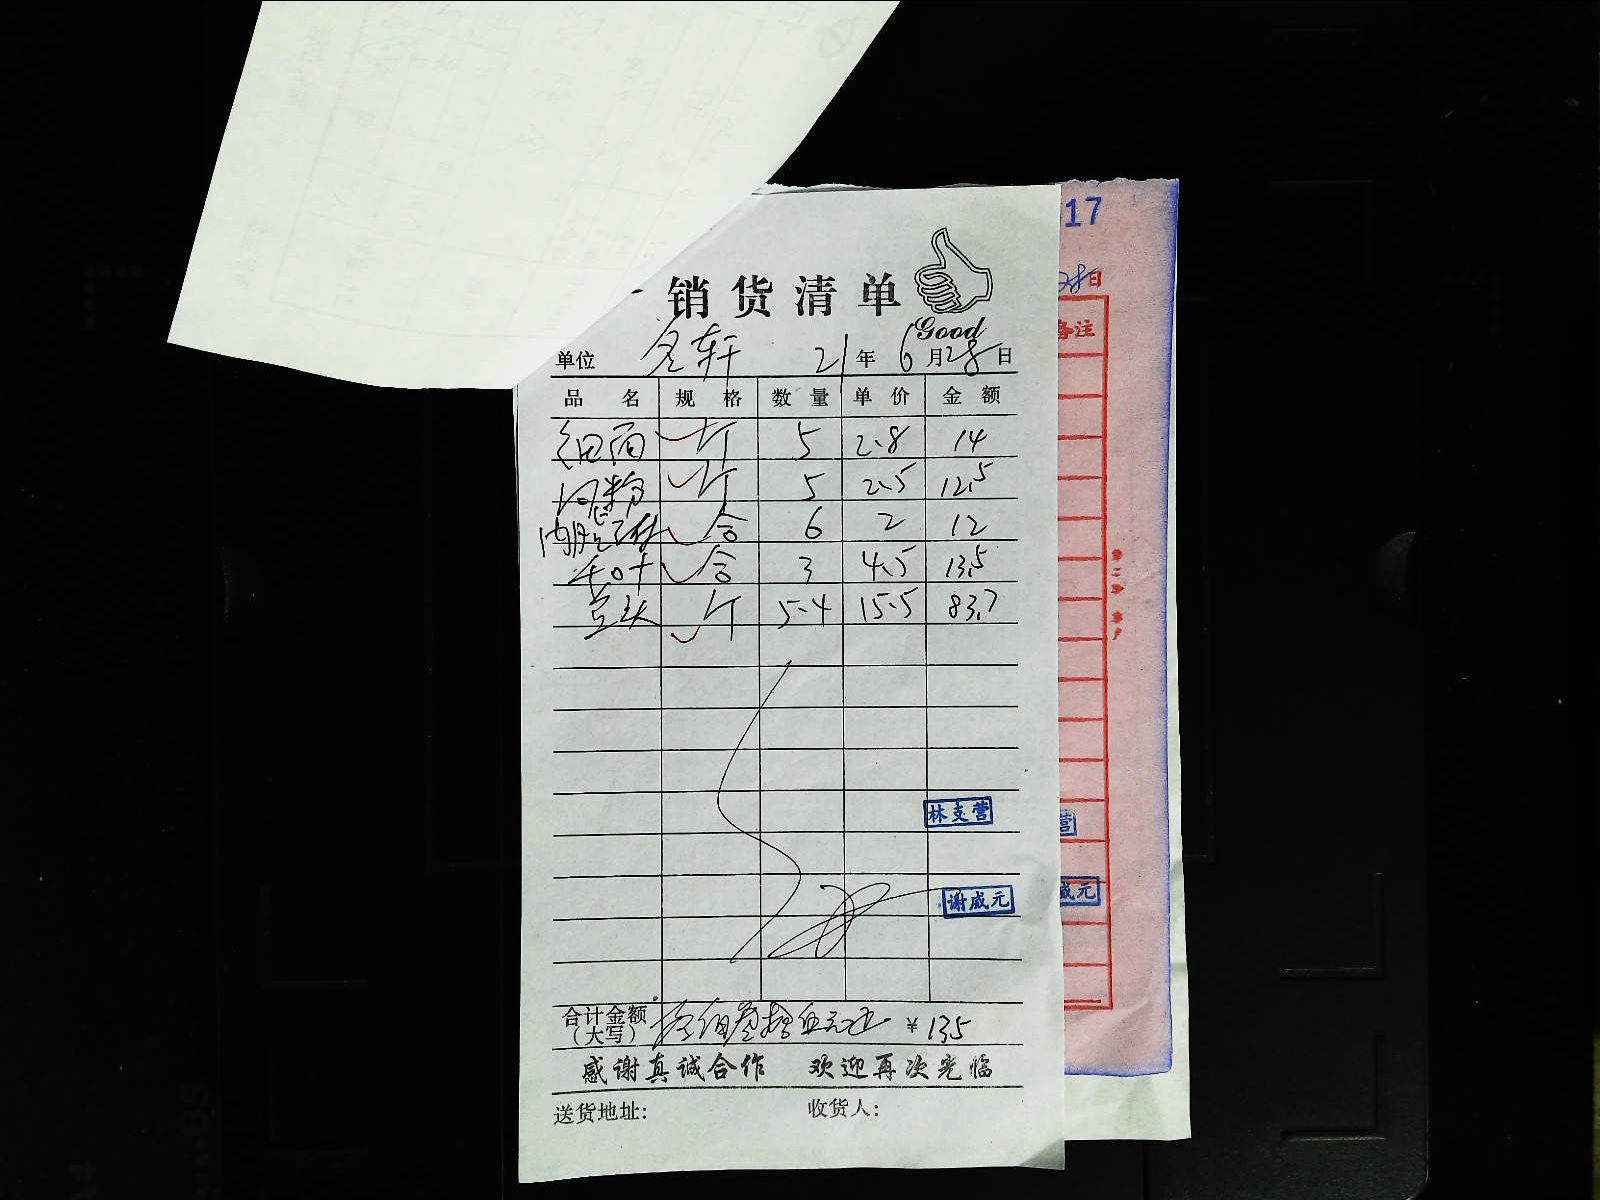 17
28日
备注
销货清单
Good
单位 轩 21年6月28日
品名 规格 数量 单价 金额
细面 斤 5 2.8 14
河粉 斤 5 2.5 12.5
内脂豆付 合 6 2 12
千叶 合 3 4.5 13.5
斤 5.4 15.5 83.7
林支营
营
谢威元
威元
合计金额(大写) 佰叁拾伍元正 ¥135
感谢真诚合作 欢迎再次光临
送货地址: 收货人: